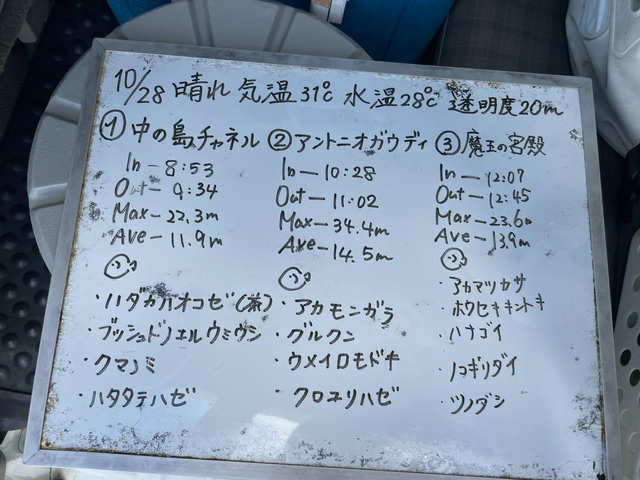 10/28 晴れ 気温31℃ 水温28℃ 透明度20m
① 中の島チャネル
In - 8:53
Out - 9:34
Max - 22.3m
Ave - 11.9m
・ハダカハオコゼ(茶)
・ブッシュドノエルウミウシ
・クマノミ
・ハタタテハゼ
② アントニオガウディ
In - 10:28
Out - 11:02
Max - 34.4m
Ave - 14.5m
・アカモンガラ
・グルクン
・ウメイロモドキ
・クロユリハゼ
③ 魔王の宮殿
In - 12:07
Out - 12:45
Max - 23.6m
Ave - 13.9m
・アカマツカサ
・ホウセキキントキ
・ハナゴイ
・ノコギリダイ
・ツノダシ